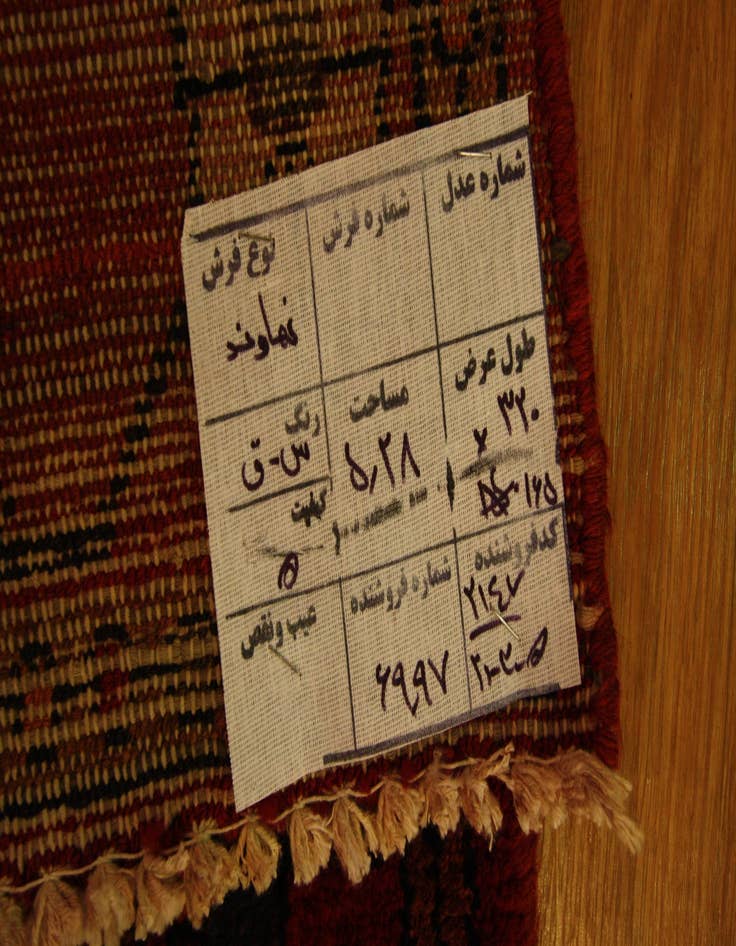 شماره عدل
شماره فرش
نوع فرش
نهاوند
طول عرض
۳۲۰
x
۱۶۵
مساحت
۵٫۲۸
رنگ
س-ق
کیفیت
۵
کدفروشنده
۲۱٤۷
۲-۳-۵
شماره فروشنده
۶۹۹۷
عیب ونقص